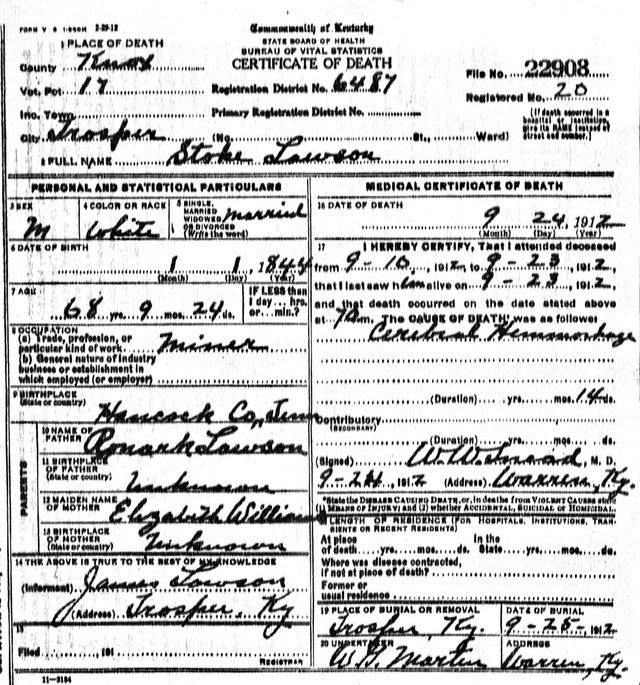 FORM V S 1-500M 2-29-12
Commonwealth of Kentucky
STATE BOARD OF HEALTH
BUREAU OF VITAL STATISTICS
CERTIFICATE OF DEATH
1 PLACE OF DEATH
County Knox
Vot. Pct 17
Registration District No. 6487
File No. 22908
Registered No. 20
Inc. Town
Primary Registration District No.
City Trosper (No. St., Ward)
[If death occurred in a hospital or institution, give its NAME instead of street and number.]
2 FULL NAME Stoke Lawson
PERSONAL AND STATISTICAL PARTICULARS
3 SEX M
4 COLOR OR RACE White
5 SINGLE, MARRIED WIDOWED, OR DIVORCED (Write the word) Married
6 DATE OF BIRTH
1 1 1844
(Month) (Day) (Year)
7 AGE
68 yrs. 9 mos. 24 ds.
IF LESS than 1 day... hrs. or min.?
8 OCCUPATION
(a) Trade, profession, or particular kind of work. Miner
(b) General nature of industry business or establishment in which employed (or employer)
9 BIRTHPLACE
(State or country) Hancock Co., Tenn
PARENTS
10 NAME OF FATHER Lawson
11 BIRTHPLACE OF FATHER (State or country) Unknown
12 MAIDEN NAME OF MOTHER Elizabeth Williams
13 BIRTHPLACE OF MOTHER (State or country) Unknown
14 THE ABOVE IS TRUE TO THE BEST OF MY KNOWLEDGE
(Informant) James Lawson
(Address) Trosper, Ky
15
Filed 191
REGISTRAR
11-3184
MEDICAL CERTIFICATE OF DEATH
16 DATE OF DEATH
9 24, 1912
(Month) (Day) (Year)
17 I HEREBY CERTIFY, That I attended deceased
from 9-10, 1912, to 9-23, 1912,
that I last saw him alive on 9-23, 1912,
and that death occurred on the date stated above
at 7am. The CAUSE OF DEATH was as follows:
Cerebral Hemmorhage
(Duration) yrs. mos. 14 ds.
Contributory
(SECONDARY)
(Duration) yrs. mos. ds.
(Signed) W. W. M. D.
9-24, 1912 (Address) Warren, Ky.
*State the DISEASE CAUSING DEATH, or, in deaths from VIOLENT CAUSES state (1) MEANS OF INJURY; and (2) whether ACCIDENTAL, SUICIDAL or HOMICIDAL.
18 LENGTH OF RESIDENCE (FOR HOSPITALS, INSTITUTIONS, TRANSIENTS OR RECENT RESIDENTS)
At place of death yrs. mos. ds. In the State yrs. mos. ds.
Where was disease contracted, if not at place of death?
Former or usual residence
19 PLACE OF BURIAL OR REMOVAL
Trosper, Ky.
DATE OF BURIAL
9-25-, 1912
20 UNDERTAKER
W. G. Martin Warren, Ky.